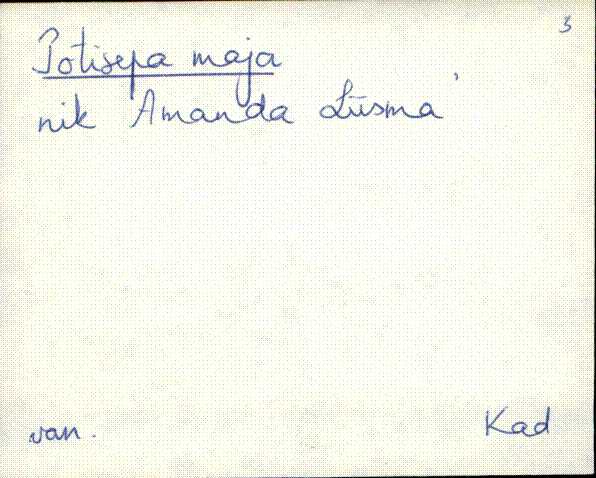 3
Potisepa maja
nik Amanda Liisma
van.
Kad